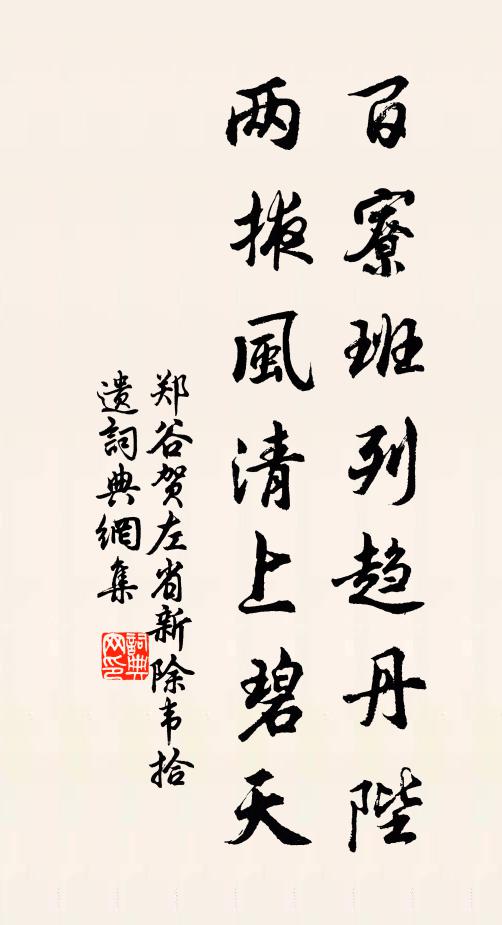 百寮班列趋丹陛
两掖風清上碧天
郑谷贺左省新除韦拾
遗詞典網集
詞典网印